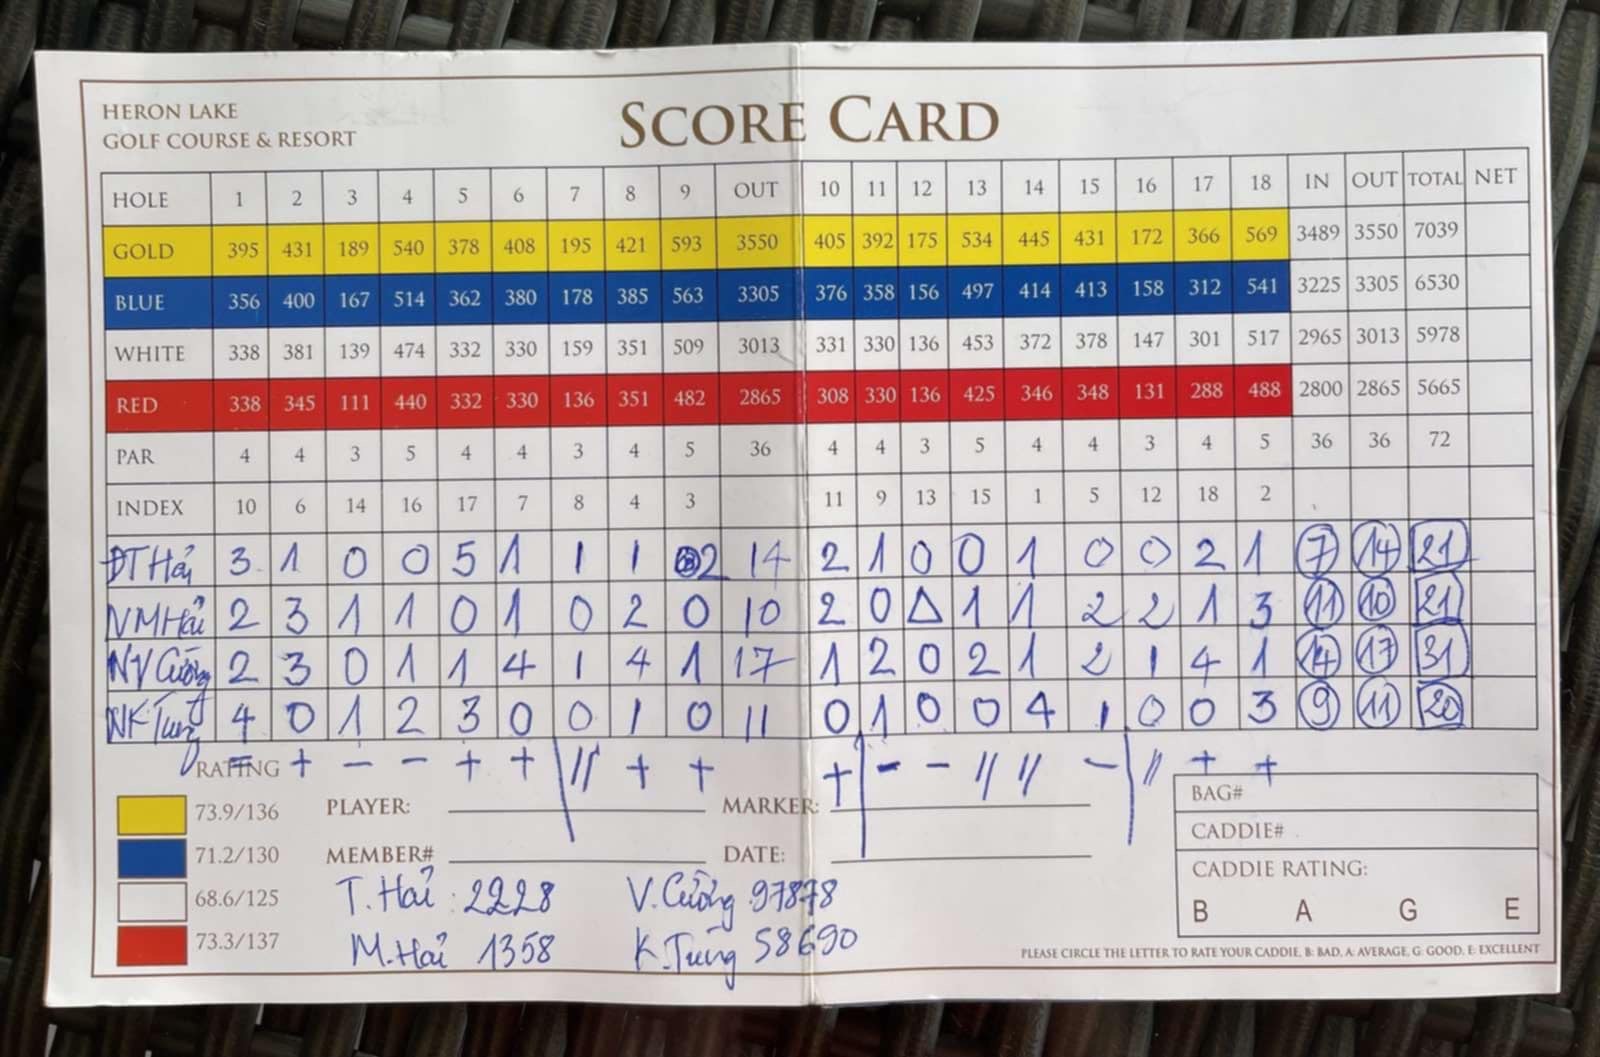 HERON LAKE
GOLF COURSE & RESORT
SCORE CARD
HOLE 1 2 3 4 5 6 7 8 9 OUT 10 11 12 13 14 15 16 17 18 IN OUT TOTAL NET
GOLD 395 431 189 540 378 408 195 421 593 3550 405 392 175 534 445 431 172 366 569 3489 3550 7039
BLUE 356 400 167 514 362 380 178 385 563 3305 376 358 156 497 414 413 158 312 541 3225 3305 6530
WHITE 338 381 139 474 332 330 159 351 509 3013 331 330 136 453 372 378 147 301 517 2965 3013 5978
RED 338 345 111 440 332 330 136 351 482 2865 308 330 136 425 346 348 131 288 488 2800 2865 5665
PAR 4 4 3 5 4 4 3 4 5 36 4 4 3 5 4 4 3 4 5 36 36 72
INDEX 10 6 14 16 17 7 8 4 3 11 9 13 15 1 5 12 18 2
ĐT Hải 3 1 0 0 5 1 1 1 2 14 2 1 0 0 1 0 0 2 1 7 14 21
NM Hải 2 3 1 1 0 1 0 2 0 10 2 0 Δ 1 1 2 2 1 3 11 10 21
NV Cường 2 3 0 1 1 4 1 4 1 17 1 2 0 2 1 2 1 4 1 14 17 31
NK Tùng 4 0 1 2 3 0 0 1 0 11 0 1 0 0 4 1 0 0 3 9 11 20
RATING + − − + + // + + + − − // // − // + +
73.9/136 PLAYER: MARKER: BAG#
71.2/130 MEMBER# DATE: CADDIE#
68.6/125 T. Hải : 2228 V. Cường 97878 CADDIE RATING:
73.3/137 M. Hải 1358 K. Tùng 58690 B A G E
PLEASE CIRCLE THE LETTER TO RATE YOUR CADDIE, B: BAD, A: AVERAGE, G: GOOD, E: EXCELLENT